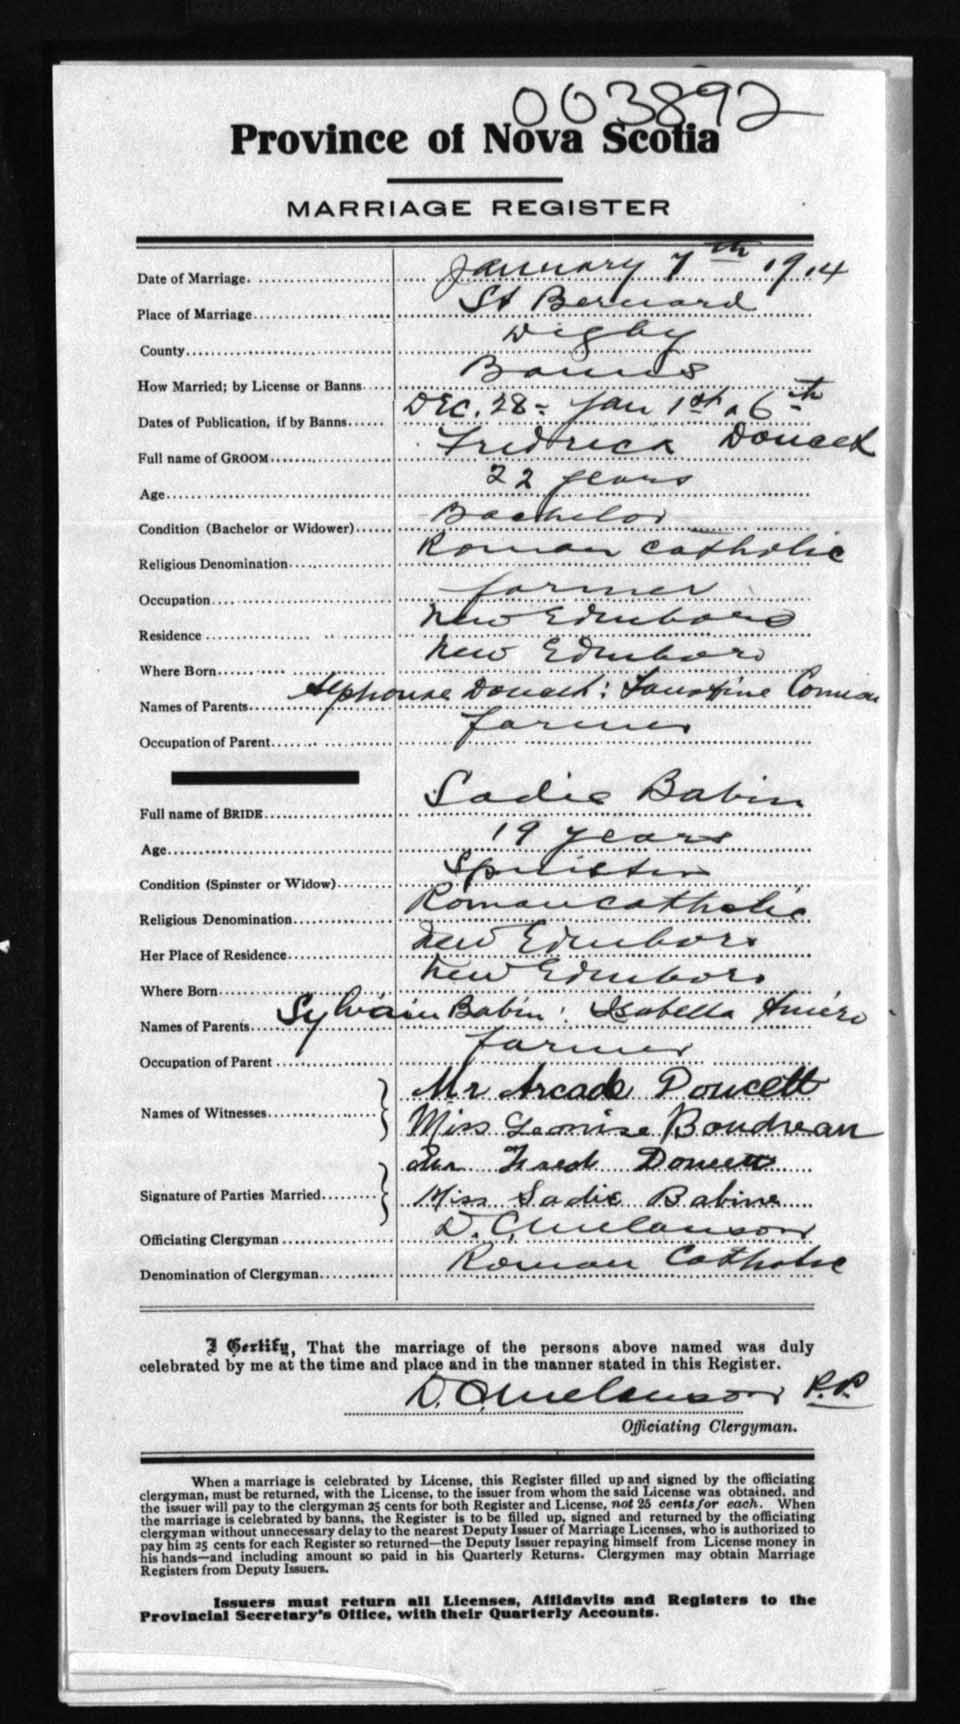 003892
Province of Nova Scotia
MARRIAGE REGISTER
Date of Marriage. January 7th 1914
Place of Marriage St Bernard
County Digby
How Married; by License or Banns Banns
Dates of Publication, if by Banns Dec. 28 - Jan 1st & 6th
Full name of GROOM Fredrick Doucet
Age 22 years
Condition (Bachelor or Widower) Bachelor
Religious Denomination Roman Catholic
Occupation farmer
Residence New Edinboro
Where Born New Edinboro
Names of Parents Alphonse Doucet: Faustine Comeau
Occupation of Parent farmer
Full name of BRIDE Sadie Babin
Age 19 years
Condition (Spinster or Widow) Spinster
Religious Denomination Roman Catholic
Her Place of Residence New Edinboro
Where Born New Edinboro
Names of Parents Sylvain Babin: Isabella Amiro
Occupation of Parent farmer
Names of Witnesses Mr Arcade Doucett
Miss Boudreau
Doucett
Signature of Parties Married Miss Sadie Babine
Officiating Clergyman D. C. Melanson
Denomination of Clergyman Roman Catholic
I Certify, That the marriage of the persons above named was duly
celebrated by me at the time and place and in the manner stated in this Register.
D. C. Melanson P.P.
Officiating Clergyman.
When a marriage is celebrated by License, this Register filled up and signed by the officiating
clergyman, must be returned, with the License, to the issuer from whom the said License was obtained, and
the issuer will pay to the clergyman 25 cents for both Register and License, not 25 cents for each. When
the marriage is celebrated by banns, the Register is to be filled up, signed and returned by the officiating
clergyman without unnecessary delay to the nearest Deputy Issuer of Marriage Licenses, who is authorized to
pay him 25 cents for each Register so returned—the Deputy Issuer repaying himself from License money in
his hands—and including amount so paid in his Quarterly Returns. Clergymen may obtain Marriage
Registers from Deputy Issuers.
Issuers must return all Licenses, Affidavits and Registers to the
Provincial Secretary's Office, with their Quarterly Accounts.